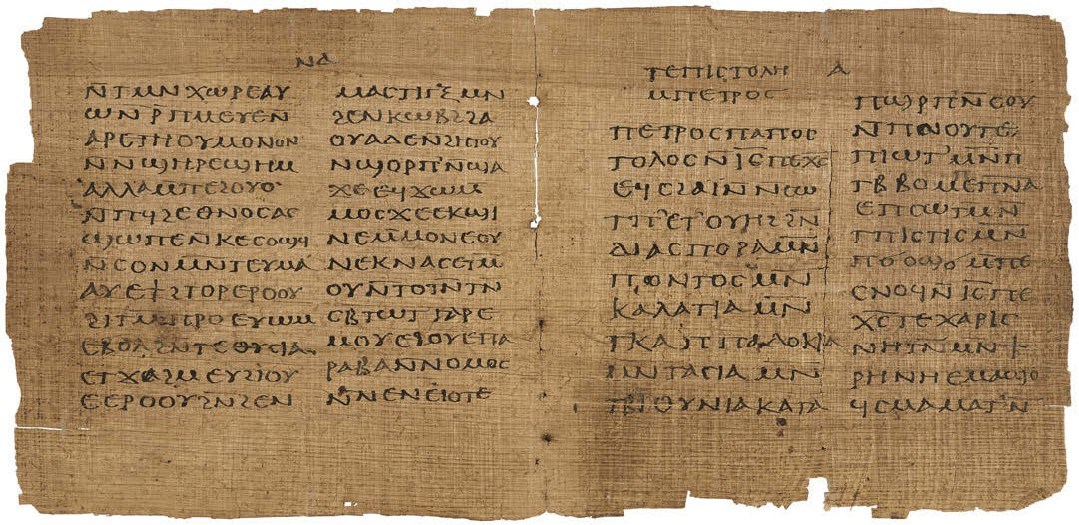 ⲛⲇ
ⲛ̄ⲧⲙⲛⲭⲱⲣⲉⲁⲩ
ⲱⲛⲣ̄ⲡⲙⲉⲩⲉⲛ
ⲁⲣⲉⲧⲏⲟⲩⲙⲟⲛⲟⲛ
ⲛⲛϣⲏⲣⲉϣⲏⲙ
ⲁⲗⲗⲁⲙⲡⲉϩⲟⲩⲟ
ⲙ̄ⲡϥϩⲉⲑⲛⲟⲥⲁⲥ
ϣⲱⲡⲉⲛⲕⲉⲥⲟϣϥ
ⲛ̄ⲥⲟⲛⲙⲛⲧⲉⲩⲙⲁ
ⲁⲩⲉϯϩⲧⲟⲣⲉⲣⲟⲟⲩ
ϩⲓⲧⲙ̄ⲡⲣⲟⲉⲩⲱⲙ
ⲉⲃⲟⲗϩⲛⲧⲉⲑⲩⲥⲓⲁ
ⲉⲧϫⲁϩⲙⲉⲩϩⲓⲟⲩ
ⲉⲉⲣⲟⲟⲩϩⲛϩⲉⲛ
ⲙⲁⲥⲧⲓⲅⲝⲙⲛ
ϩⲉⲛⲕⲱⲃϩϩⲁ
ⲟⲩⲁⲇⲉⲛϩⲏⲧⲟⲩ
ⲛϣⲟⲣⲡⲛ̄ϣⲁ
ϫⲉⲉϥϫⲱⲙ
ⲙⲟⲥϫⲉⲉⲕϣⲓ
ⲛⲉⲙ̄ⲙⲟⲛⲉⲟⲩ
ⲛⲉⲕⲛⲁⲥⲉⲧⲙ
ⲟⲩⲛ̄ⲧⲟⲧⲛⲧⲛ
ⲥⲃⲧⲱⲧⲅⲁⲣⲉ
ⲙⲟⲩⲉϩⲟⲩⲉⲡⲁ
ⲣⲁⲃⲁⲛⲛⲟⲙⲟⲥ
ⲛ̄ⲛⲉⲛⲉⲓⲟⲧⲉ
ⲧⲉⲡⲓⲥⲧⲟⲗⲏ ⲁ
ⲙⲡⲉⲧⲣⲟⲥ
ⲡⲉⲧⲣⲟⲥⲡⲁⲡⲟⲥ
ⲧⲟⲗⲟⲥⲛ̄ⲓ̄ⲥ̄ⲡⲉⲭⲥ
ⲉϥⲥϩⲁⲓ̈ⲛ̄ⲛⲥⲱ
ⲧⲡ̄ⲉⲧⲟⲩⲏϩϩⲛ̄
ⲇⲓⲁⲥⲡⲟⲣⲁⲙ̄ⲛ̄
ⲡⲡⲟⲛⲧⲟⲥⲙⲛ
ⲕⲁⲗⲁⲧⲓⲁⲙ̄ⲛ̄
ⲧⲕⲁⲡⲡⲁⲇⲟⲕⲓⲁ
ⲙⲛⲧⲁⲥⲓⲁⲙⲛ
ⲧⲃⲓⲑⲩⲛⲓⲁⲕⲁⲧⲁ
ⲡϣⲣⲡⲛ̄ⲥⲟⲩ
ⲛ̄ⲡⲛⲟⲩⲧⲉ
ⲡⲓⲱⲧⲙⲛ̄ⲡ
ⲧⲃⲃⲟⲙⲉⲡⲛ̄ⲁ̄
ⲉⲡⲥⲱⲧⲙⲛ̄
ⲧⲡⲓⲥⲧⲓⲥⲙⲛ
ⲡϭⲟϣϭϣ̄ⲙⲡⲉ
ⲥⲛⲟϥⲛ̄ⲓ̄ⲥ̄ⲡⲉ
ⲭ̄ⲥ̄ⲧⲉⲭⲁⲣⲓⲥ
ⲛⲏⲧⲛ̄ⲙⲛϯ
ⲣⲏⲛⲏⲉⲙⲁϣⲟ
ϥⲥⲙⲁⲙⲁⲧⲛ̄